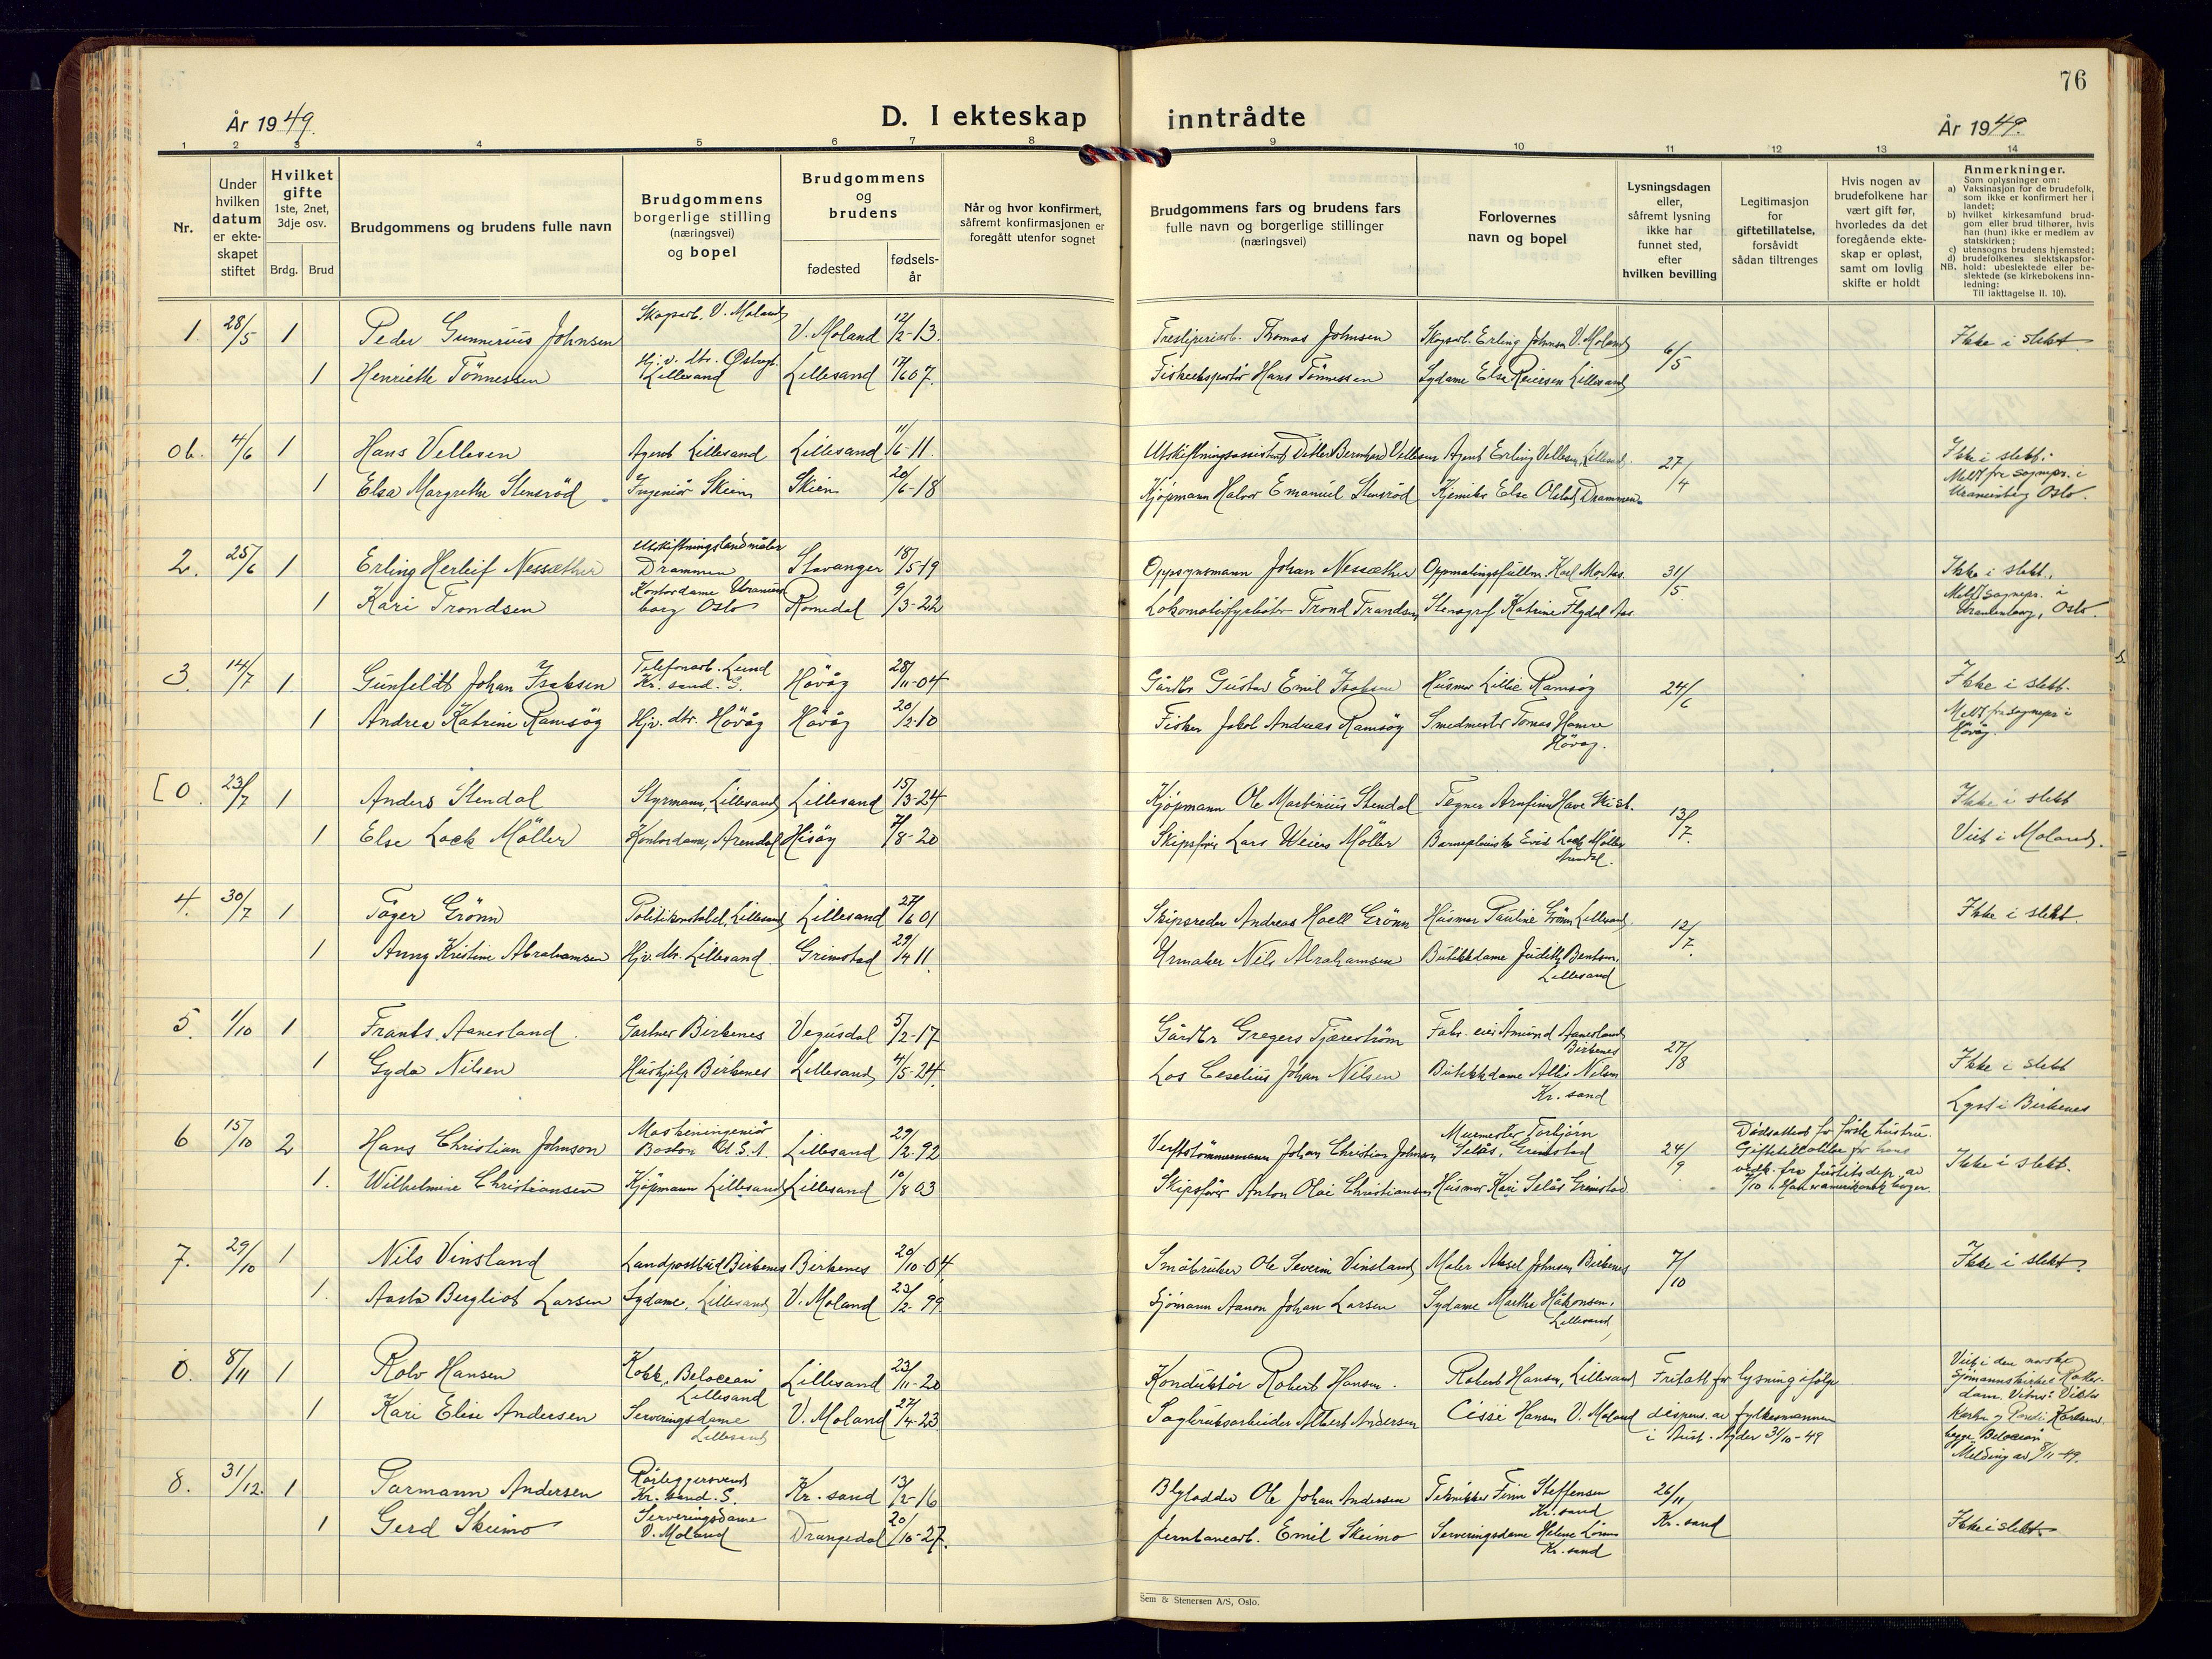 76
År 1949.
D. I ekteskap inntrådte
År 1949.
1 2 3 4 5 6 7 8 9 10 11 12 13 14
Nr.
Under hvilken datum er ekte- skapet stiftet
Hvilket gifte 1ste, 2net, 3dje osv.
Brdg. Brud
Brudgommens og brudens fulle navn
Brudgommens borgerlige stilling (næringsvei) og bopel
Brudgommens og brudens
fødested
fødsels- år
Når og hvor konfirmert, såfremt konfirmasjonen er foregått utenfor sognet
Brudgommens fars og brudens fars fulle navn og borgerlige stillinger (næringsvei)
Forlovernes navn og bopel
Lysningsdagen eller, såfremt lysning ikke har funnet sted, efter hvilken bevilling
Legitimasjon for giftetillatelse, forsåvidt sådan tiltrenges
Hvis nogen av brudefolkene har vært gift før, hvorledes da det foregående ekte- skap er opløst, samt om lovlig skifte er holdt
Anmerkninger.
Som oplysninger om:
a) Vaksinasjon for de brudefolk, som ikke er konfirmert her i landet;
b) hvilket kirkesamfund brud- gom eller brud tilhører, hvis han (hun) ikke er medlem av statskirken;
c) utensogns brudens hjemsted;
d) brudefolkenes slektskapsfor- hold: ubeslektede eller be- slektede (se kirkebokens inn- ledning:
NB. Til iakttagelse II. 10).
1. 28/5 1 Peder Gunnerius Johnsen Skogsarb. V. Moland V. Moland 12/2-13. Thomas Johnsen Skogsarb. Erling Johnsen V. Moland 6/5 Ikke i slekt
1 Henriette Tönnessen Hj.v. dtr. Lillesand Lillesand 07. Hans Tönnessen Sydame Else Reiersen Lillesand
ob. 4/6 1 Hans Vellesen Agent Lillesand Lillesand 11/6-11. Utskiftningsassistent Ditlev Bernhard Vellesen Agent Erling Vellesen, Lillesand. 27/4 Ikke i slekt.
1 Elsa Margrethe Stensröd Ingeniör Skien Skien 20/6-18 Kjöpmann Halvor Emanuel Stensröd Kjemiker Else Olstad, Drammen. Meldt fra sognepr. i Uranienborg Oslo.
2. 25/6 1 Erling Herleif Nessæther Utskiftningslandmåler Drammen Stavanger 18/5-19 Oppsynsmann Johan Nessæther 31/5 Ikke i slekt.
1 Kari Trondsen Kontordame Uranienborg Oslo Romedal 9/3-22 Lokomotivfyrböter Trond Trondsen Stenograf Katrine Flydal Aas Meldt sognepr. i Uranienborg, Oslo.
3. 14/7 1. Gunfeldt Johan Isaksen Telefonarb. Lund Kr. sand. S. Hövåg 28/11-04 Gårdbr Gustav Emil Isaksen Husmor Lillie Ramsög 24/6 Ikke i slekt.
1 Andrea Katrine Ramsög Hjv. dtr. Hövåg Hövåg 20/2-10 Fisker Jakob Andreas Ramsög Smedmester Tomas Hamre Hövåg. Meldt fra sognepr i Hövåg.
[0. 23/7 1 Anders Stendal Styrmann, Lillesand Lillesand 15/3-24 Kjöpmann Ole Martinius Stendal Tegner Arnfinn Have 13/7. Ikke i slekt
1 Else Lock Möller Kontordame, Arendal Hisöy 7/8-20 Skipsförer Lars Weiers Möller Lock Möller Arendal. Viet i Moland.
4. 30/7 1 Töger Grönn Politikonstabel, Lillesand Lillesand 27/6 01 Skipsreder Andreas Hoell Grönn Husmor Pauline Grönn Lillesand 12/7. Ikke i slekt.
1 Anny Kristine Abrahamsen Hjv. dtr. Lillesand Grimstad 29/4 11. Urmaker Nils Abrahamsen Butikkdame Judith Bentsen Lillesand
5. 1/10 1 Frants. Aanesland. Gartner Birkenes Vegusdal 5/2-17 Gårdbr Gregers Tjærestrøm Fabr. eier Åmund Aanesland Birkenes 27/8 Ikke i slekt
1 Gyda Nilsen Hushjelp Birkenes Lillesand 4/5-24. Los Ceselius Johan Nilsen Butikkdame Allis Nilsen Kr. sand Lyst i Birkenes
6 15/10 2 Hans Christian Johnson Maskiningeniör Boston U.S.A. Lillesand 29/2-92 Verftstömmermann Johan Christian Johnsen Murmester Torbjörn Selås, Grimstad 24/9 Dødsattest for første hustru. Giftetillatelse for hans vedk. fra Justitsdep. av Ikke i slekt.
1. Wilhelmine Christiansen Kjöpmann Lillesand Lillesand 10/8 03 Skipsförer Anton Olai Christiansen Husmor Kari Selås Grimstad
7. 29/10 1 Nils Vinsland Landpostbud Birkenes Birkenes 20/10-04 Småbruker Ole Severin Vinsland Maler Aksel Johnsen Birkenes 7/10 Ikke i slekt.
1. Aasta Bergliot Larsen Sydame, Lillesand V. Moland 23/2-99. Sjömann Aanon Johan Larsen Sydame Marthe Håkonsen, Lillesand
0. 8/11 1 Rolv Hansen Kokk, Belocean Lillesand Lillesand 23/11-20 Konduktör Robert Hansen. Robert Hansen, Lillesand Fritatt for lysning ifølge Viet i den norske Sjömannskirke i Rotterdam.
1 Kari Elise Andersen Serveringsdame Lillesand V. Moland 27/4-23 Sagbruksarbeider Albert Andersen Cissi Hansen V. Moland dispens. av fylkesmannen i Aust-Agder 31/10-49 begge Belocean Melding av 8/11-49.
8. 31/12. 1 Tarmann Andersen Rörleggersvend Kr. sand. S. Kr. sand 13/2-16 Ole Johan Andersen Tekniker Finn Steffensen Kr. sand 26/11 Kr. sand
1 Gerd Skeimo Serveringsdame V. Moland Drangedal 20/10-27. Jernbanearb. Emil Skeimo Serveringsdame Helene Kr. sand Ikke i slekt
Sem & Stenersen A/S, Oslo.